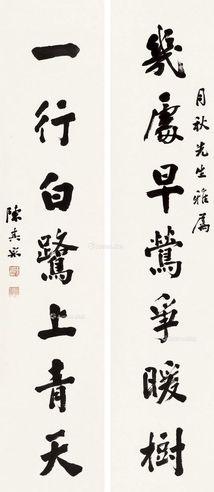 月秋先生雅属
幾處早鶯爭暖樹
一行白鷺上青天
陳其采